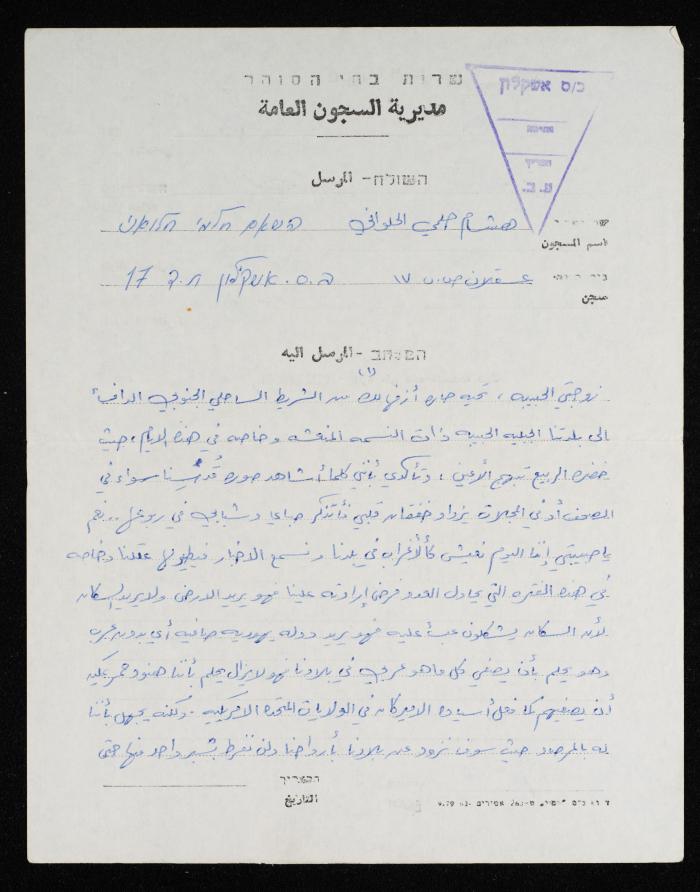 שרות בתי הסוהר
مديرية السجون العامة
כ/ס אשקלון
ע. ב.
השולח - المرسل
هشام حلمي الحلواني השאם חלמי חלואני
اسم المسجون
عسقلان ص.ب ١٧ ב.ס. אשקלון ת.ד 17
سجن
המכתב - المرسل اليه
(١)
زوجتي الحبيبه ، تحيه حاره أزفها لك من الشريط الساحلي الجنوبي الدافئ
الى بلدتنا الجبليه الحبيبه ذات النسمه المنعشه وخاصه في هذه الايام ، حيث
خضره الربيع تبهج الأعين ، وتأكدي بأنني كلما أشاهد صوره قُدسنا سواء في
الصحف أو في المجلات يزداد خفقان قلبي فأتذكر صباي وشبابي في ربوعها .. نعم
يا حبيبتي إننا اليوم نعيش كالأغراب في بلدنا ونسمع الاخبار فيطير لها عقلنا وخاصه
في هذه الفتره التي يحاول العدو فرض إرادته علينا فهو يريد الارض ولا يريد السكان
لأن السكان يشكلون عبئ عليه فهو يريد دوله يهوديه صافيه أي بدون عرب
وهو يحلم بأن يصفي كل ما هو عربي في بلادنا فهو لا يزال يحلم بأننا هنود حمر يمكنه
أن يصفيهم كما فعل أسياده الاميركان في الولايات المتحده الامريكيه . ولكنه يجهل بأننا
له بالمرصاد حيث سوف نزود عن بلادنا بأرواحنا ولن نفرط بشبر واحد منها حتى
התאריך
التاريخ